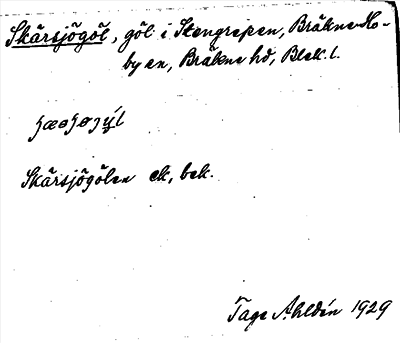 Skärsjögöl, göl i Stengrepen, Bräkne-Ho-
by sn, Bräkne hd, Blek. l.
Skärsjögölen ek, bek.
Tage Ahldén 1929